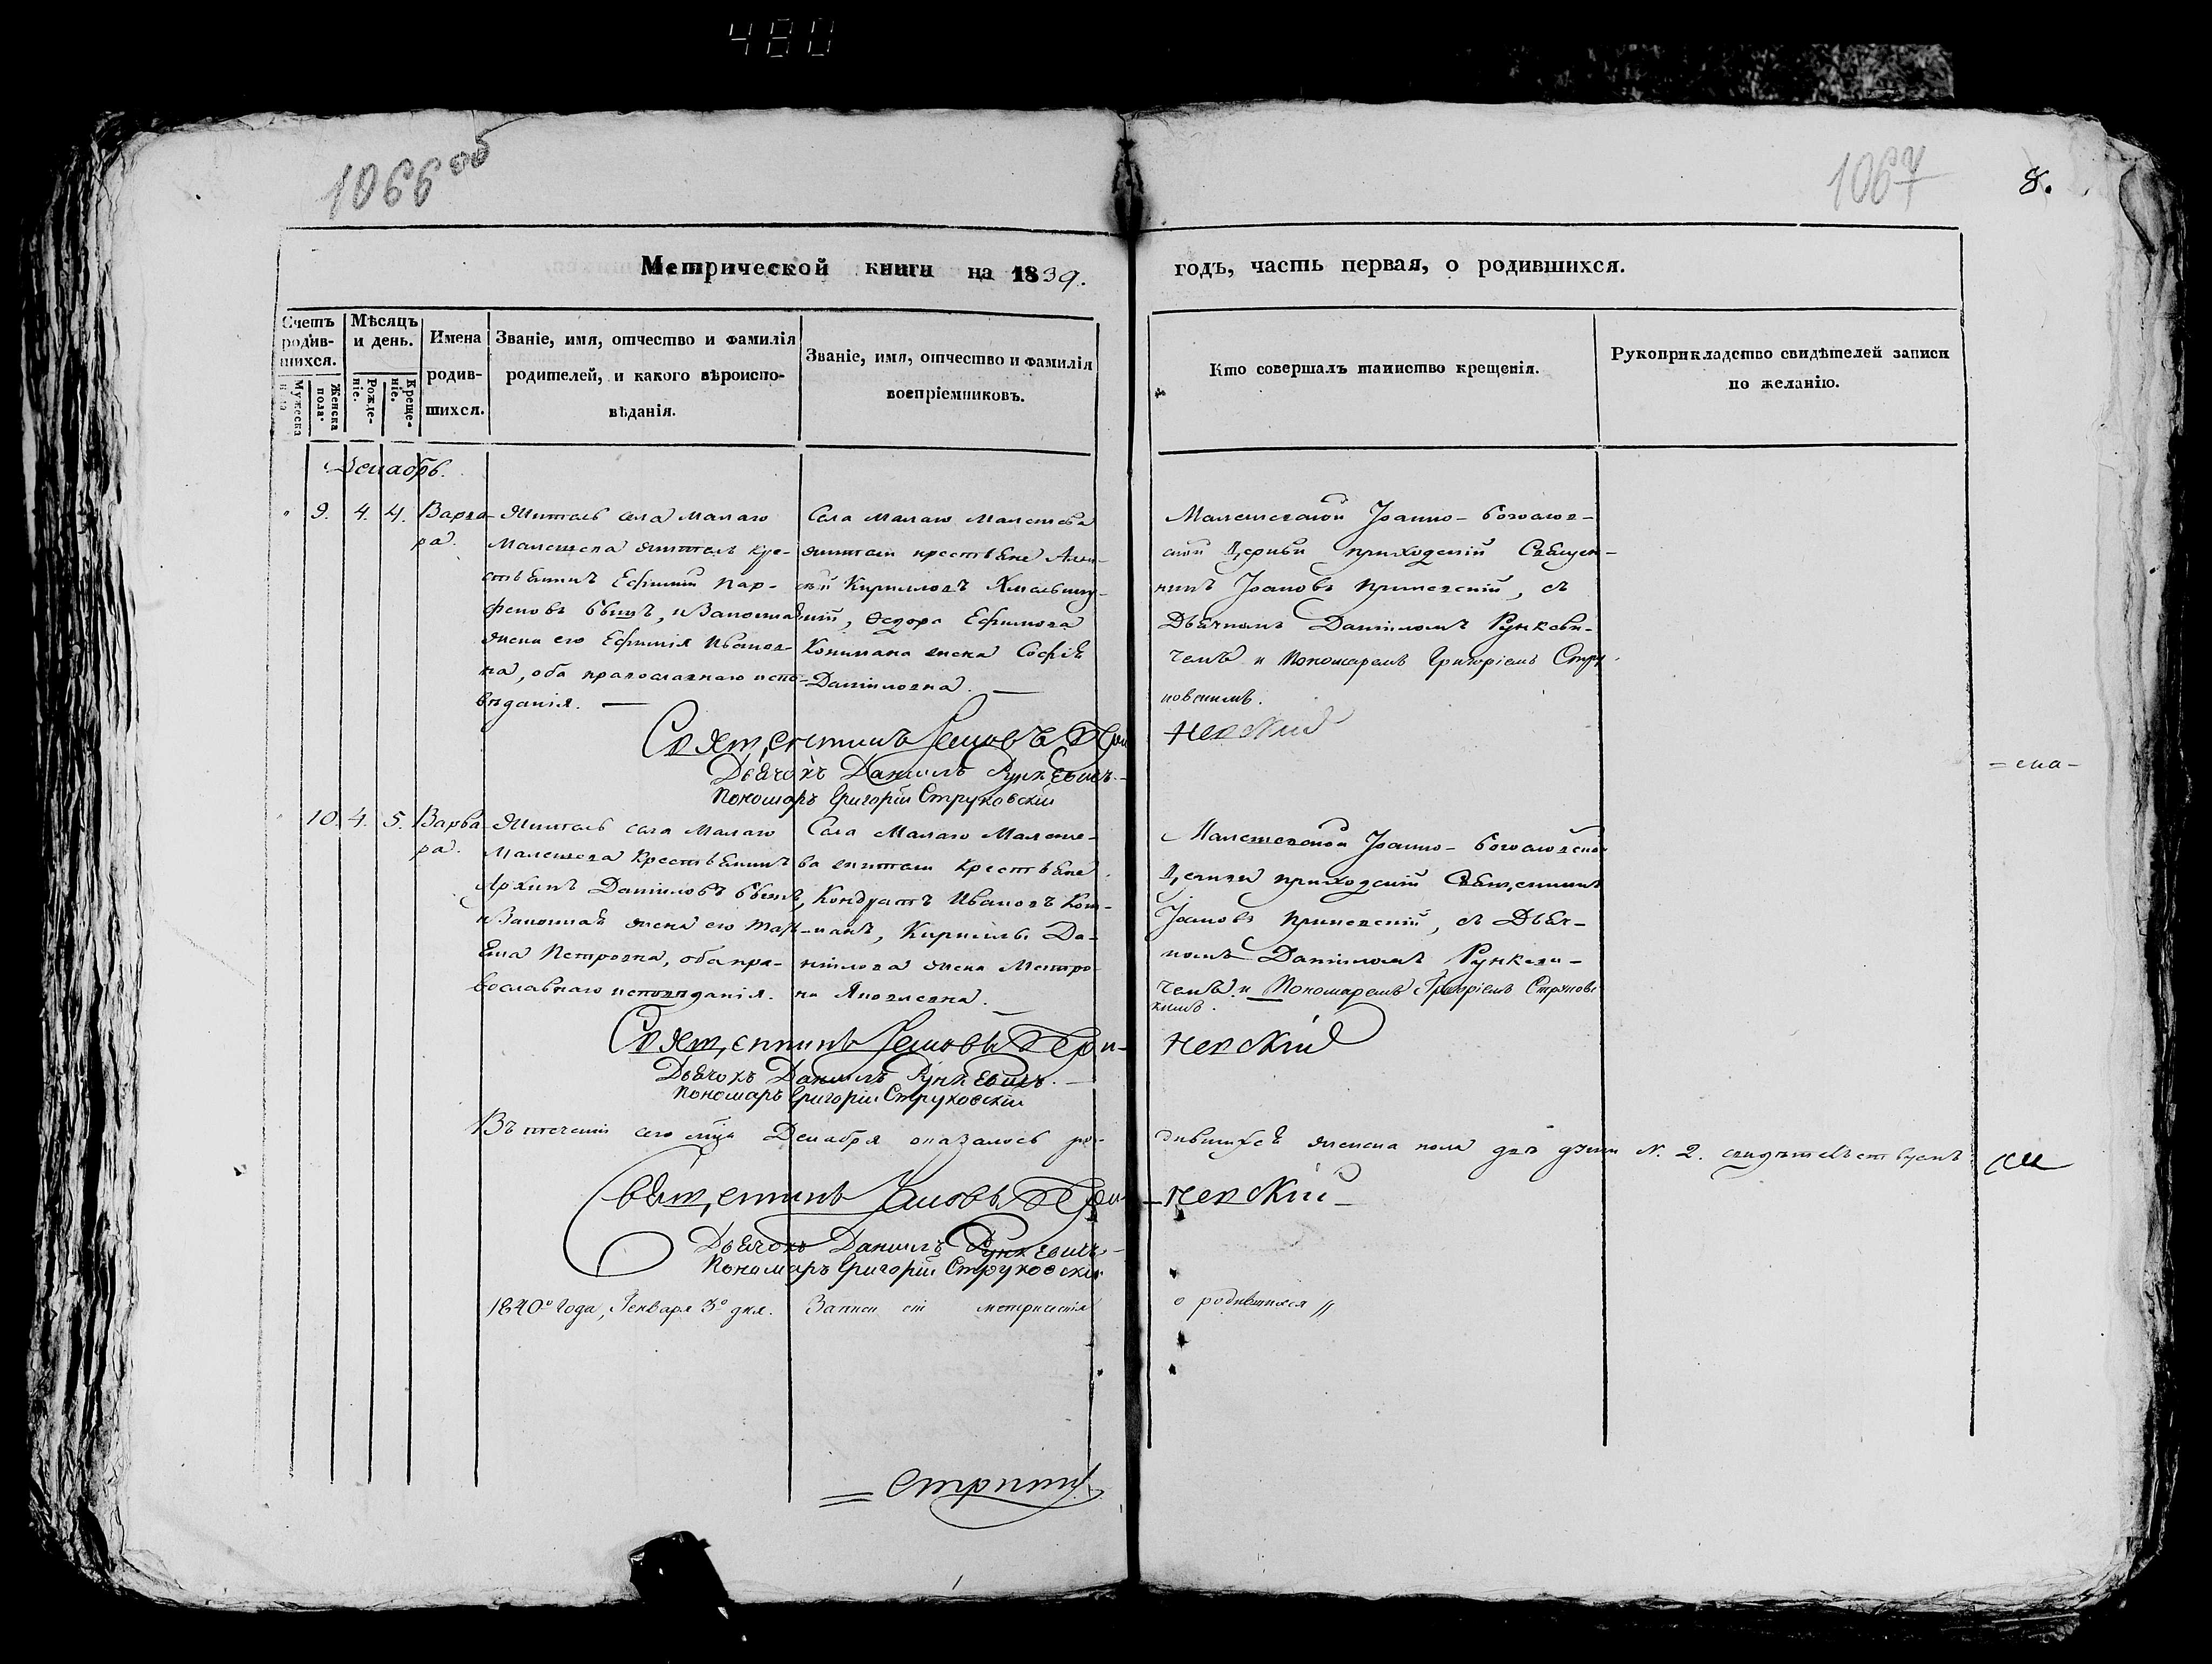 480
1066 об
1067
8.
Метрической книги на 1839.
годъ, часть первая, о родившихся.
Счетъ родив-шихся.
Мужеска пола
Женска пола.
Мѣсяцъ и день.
Рожде-ніе.
Креще-ніе.
Имена
родив-
шихся.
Званіе, имя, отчество и фамилія
родителей, и какого вѣроиспо-
вѣданія.
Званіе, имя, отчество и фамилія
воспріемниковъ.
Кто совершалъ таинство крещенія.
Рукоприкладство свидѣтелей записи
по желанію.
Декабрь.
9. 4. 4. Варва-
ра.
Житель села Малаго
Малешева житель кре-
стьянинъ Ефимій Пар-
феновъ
жена его Ефимія Иванов-
на, оба православнаго испо-
вѣданія. —
Села Малаго Малешева
жители крестьяне Алек-
сѣй Кирилловъ
Ѳедора Ефимова
жена Софія
Данииловна. —
Малешевской Іоанно-Богослов-
ской Церкви приходскій Священ-
никъ Іаковъ Приневскій, съ
Дьячкомъ Данииломъ Рункеви-
чемъ и Пономаремъ Григоріемъ Стру-
ковскимъ.
Священникъ Іаковъ При-
невскій
Дьячокъ Даниилъ Рункевичъ. —
Пономаръ Григорій Струковскій
= ска -
10. 4. 5. Варва
ра.
Житель села Малаго
Малешева Крестьянинъ
Архипъ Данииловъ
и Законная жена его Тать-
яна Петровна, оба пра-
вославнаго исповѣданія.
Села Малаго Малеше-
ва жители Крестьяне
Кондратъ Ивановъ
Кирилла Да-
ниилова жена Матро-
на Яковлевна.
Малешевской Іоанно-Богословской
Церкви приходскій Священникъ
Іаковъ Приневскій, съ Дьяч-
комъ Данииломъ Рункеви-
чемъ и Пономаремъ Григоріемъ Струковс
кимъ.
Священникъ Іаковъ При-
невскій
Дьячокъ Даниилъ Рункевичъ. —
Пономаръ Григорій Струковскій
Въ теченіи сего мѣсяца Декабря оказалось ро-
дившихся женска пола двѣ души N. 2. свидѣтельствуемъ
Священникъ Іаковъ При-
невскій -
Дьячокъ Даниилъ Рункевичъ -
Пономаръ Григорій Струковскій
1840го Года, Генваря 3го дня. Записи сіи метрическія
о родившихся //